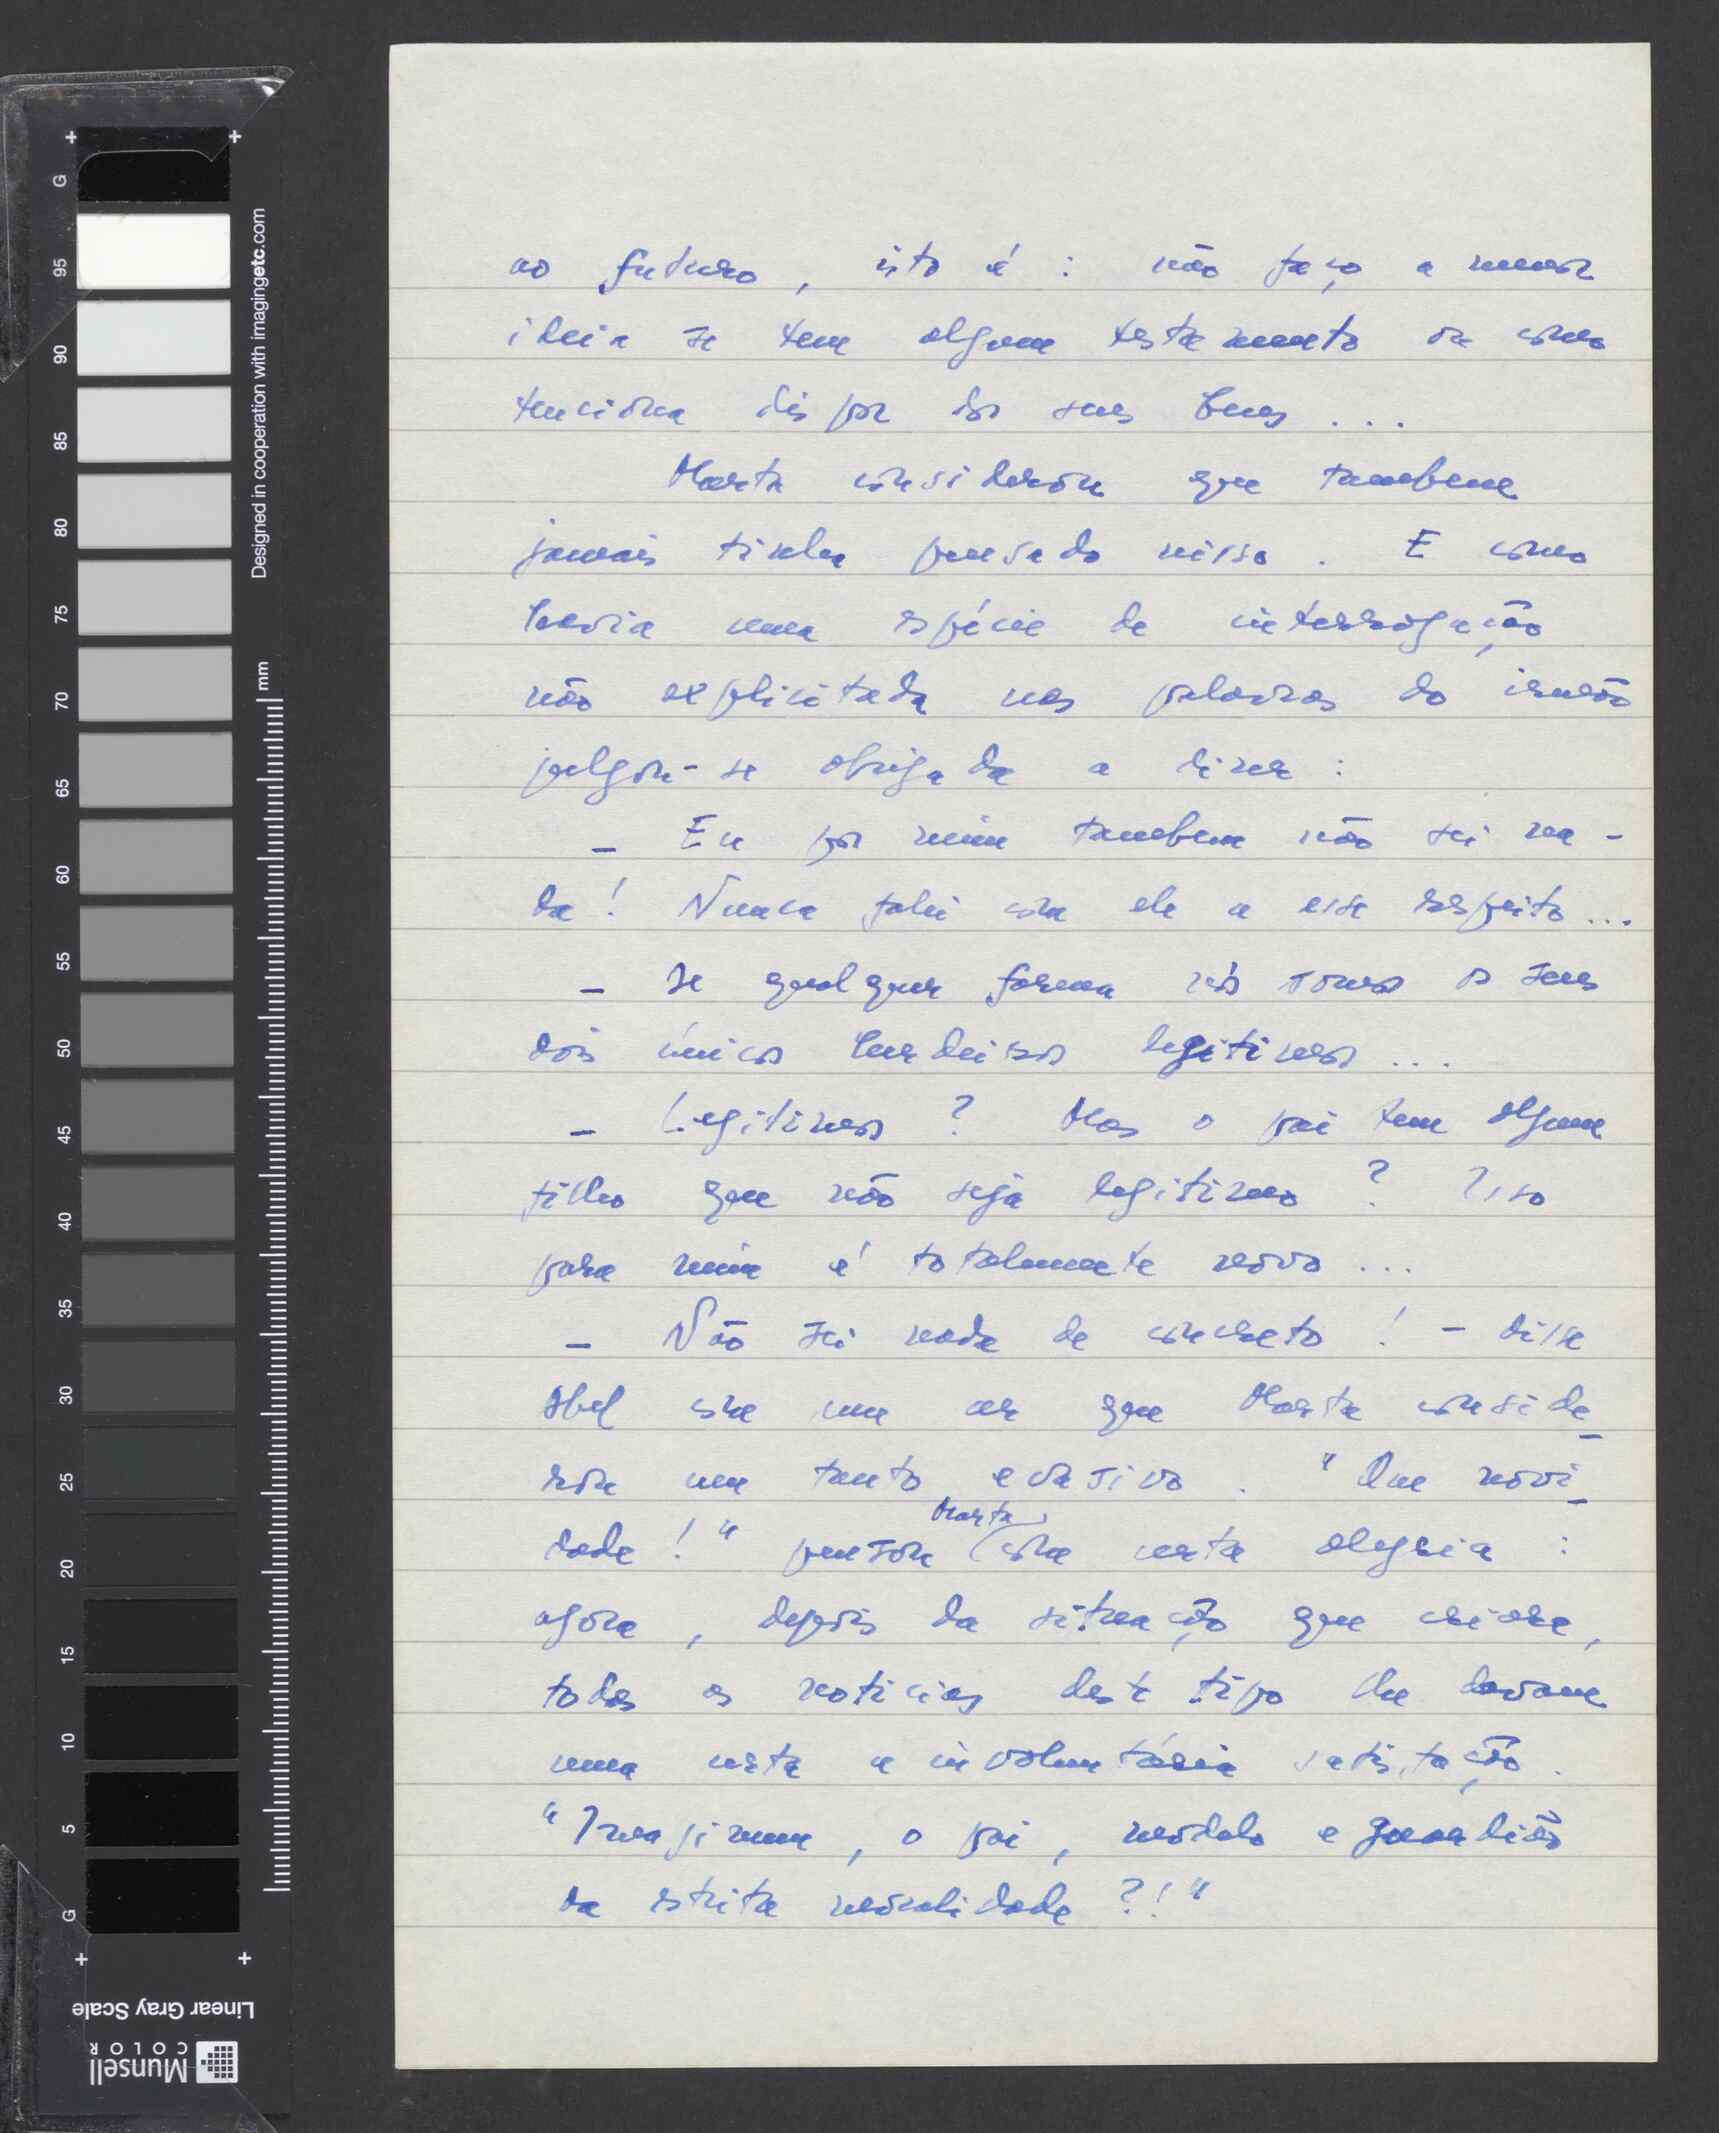 ao futuro, isto é: não faço a menor
ideia se tem algum testamento ou como
tenciona dispor dos seus bens...
Marta considerou que tambem
jamais tinha pensado nisso. E como
havia uma espécie de interrogação
não explicitada nas palavras do irmão
julgou-se obrigada a dizer:
– Eu por mim tambem não sei na-
da! Nunca falei com ele a esse respeito...
– De qualquer forma nós somos os seus
dois únicos herdeiros legitimos...
– Legitimos? Mas o pai tem algum
filho que não seja legitimo? Isso
para mim é totalmente novo...
– Não sei nada de concreto! – disse
Abel com um ar que Marta conside-
rou um tanto evasivo. "Que novi-
dade!" pensou Marta com certa alegria:
agora, depois da situação que criara,
todas as noticias deste tipo lhe davam
uma certa e involuntária satisfação.
"Imaginem, o pai, modelo e guardião
da estrita moralidade?!"
G
95
90
85
80
75
70
65
60
55
50
45
40
35
30
25
20
15
10
5
G
mm
Designed in cooperation with imagingetc.com
Linear Gray Scale
Munsell
COLOR